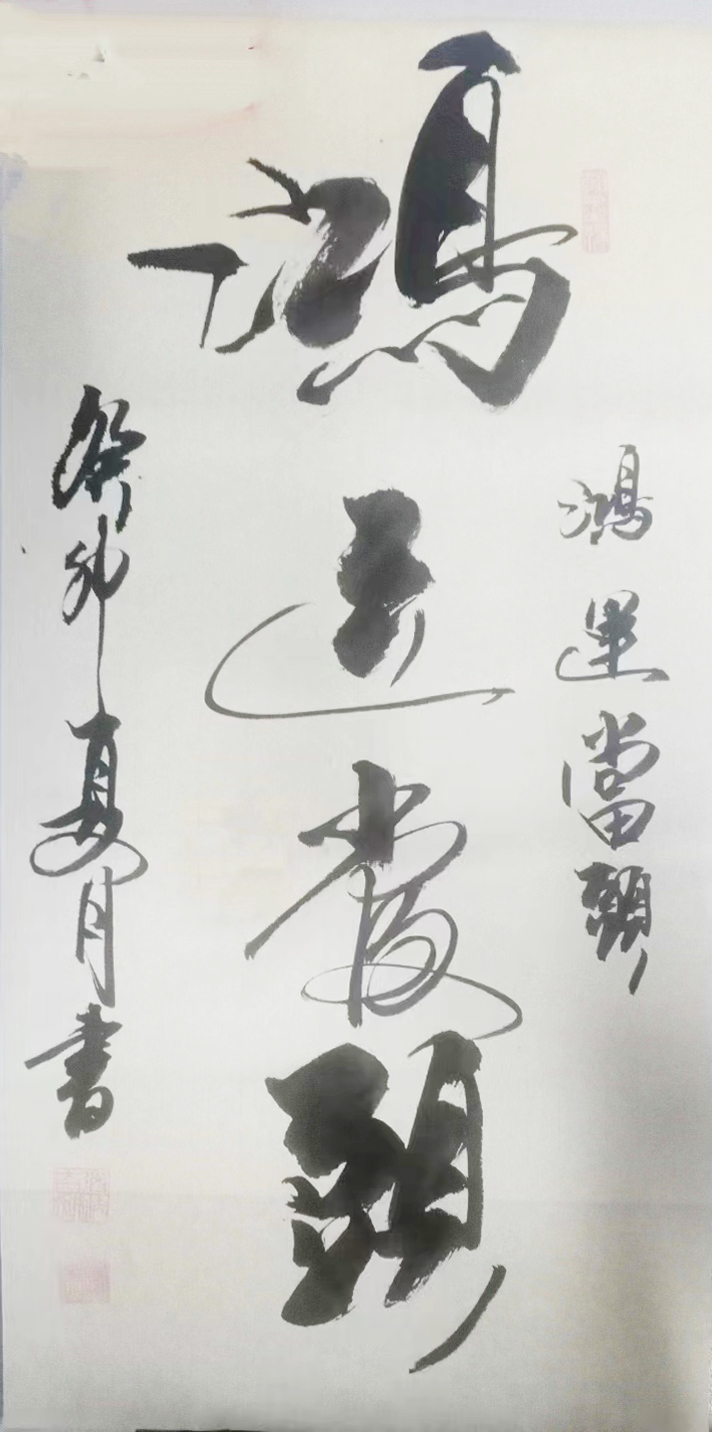 鴻運當頭
鴻運當頭
癸卯夏月書